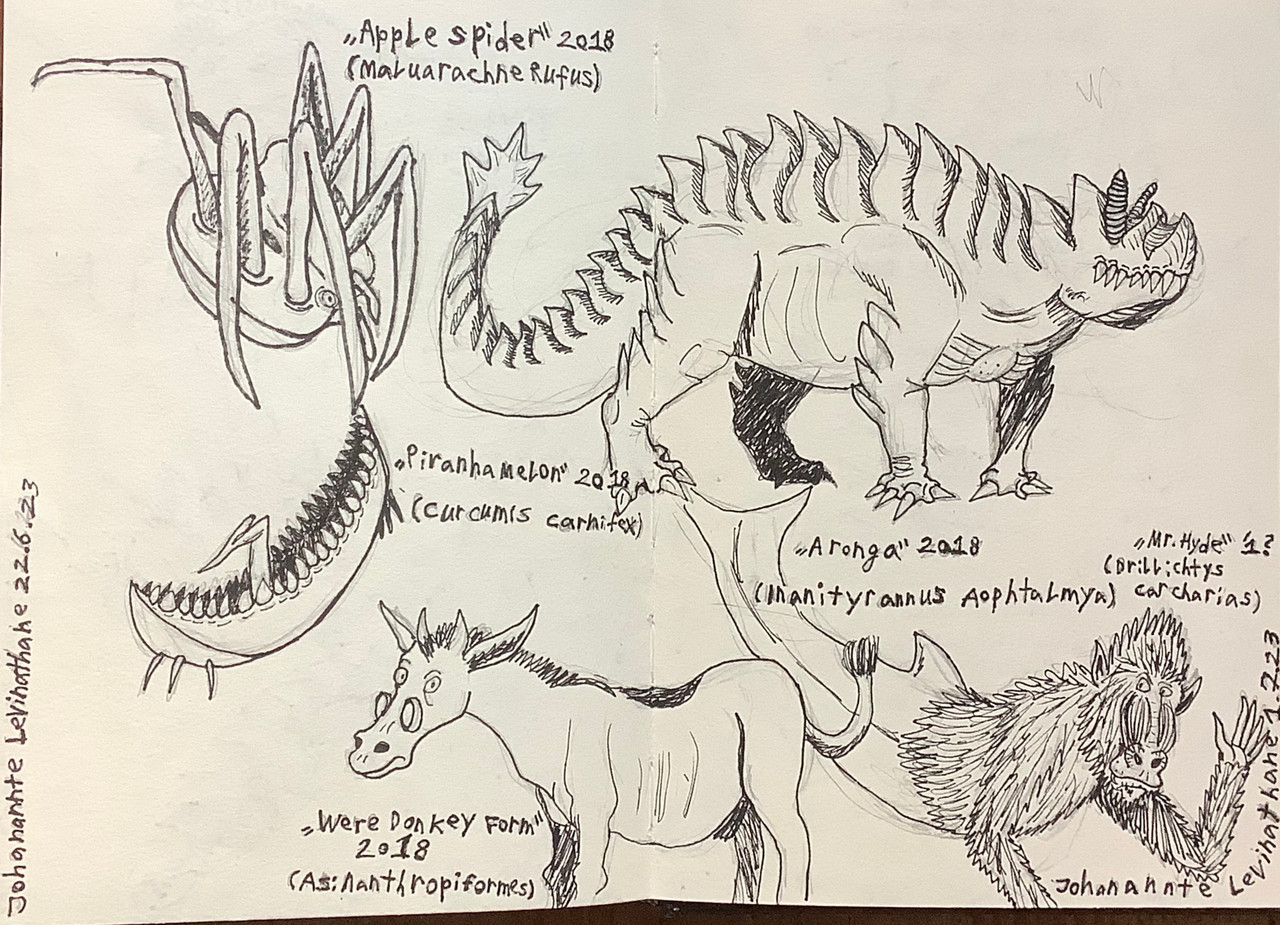 „Apple spider" 2018
(Maluarachne Rufus)
„Piranhamelon" 2018
(Curcumis carnifex)
„Aronga" 2018
(Inanityrannus Aophtalmya)
„Mr. Hyde" 1?
(Brillichtys
carcharias)
„Were Donkey Form"
2018
(Asinanthropiformes)
Johanannte Levihathane 22.6.23
Johanannte Levihathane 1.7.23